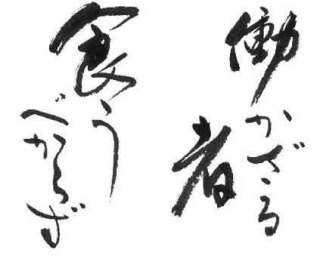 働かざる
者
食う
べからず